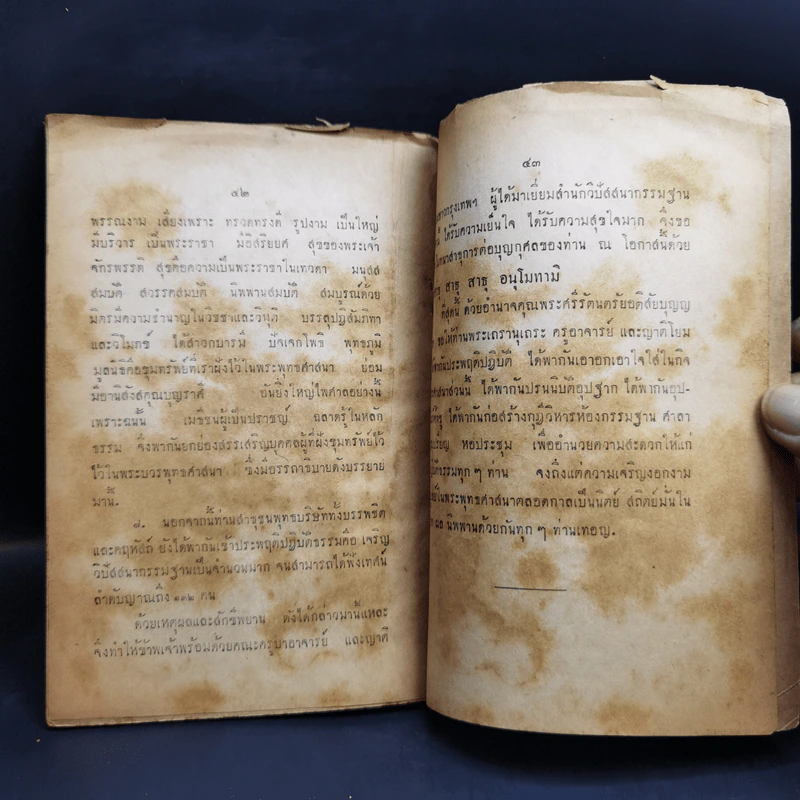 ๔๒
พรรณงาม เสียงเพราะ ทรวดทรงดี รูปงาม เป็นใหญ่
มีบริวาร เป็นพระราชา มีอิสรยยศ สุขของพระเจ้า
จักรพรรดิ สุขคือความเป็นพระราชาในเทวดา มนุสส
สมบัติ สวรรคสมบัติ นิพพานสมบัติ สมบูรณ์ด้วย
มิตรมีความชำนาญในวิชชาและวิมุติ บรรลุปฏิสัมภิทา
และวิโมกข์ ได้สาวกบารมี ปัจเจกโพธิ พุทธภูมิ
มูลนิธิคือขุมทรัพย์ที่เราฝังไว้ในพระพุทธศาสนา ย่อม
มีอานิสังสคุณบุญราศี อันยิ่งใหญ่ไพศาลอย่างนี้
เพราะฉนั้น เมธีชนผู้เป็นปราชญ์ ฉลาดรู้ในหลัก
ธรรม จึงพากันยกย่องสรรเสริญบุคคลผู้ที่ฝังขุมทรัพย์ไว้
ไว้ในพระบวรพุทธศาสนา ซึ่งมีอรรถาธิบายดังบรรยาย
มานี้.
๘. นอกจากนี้ท่านสาธุชนพุทธบริษัททั้งบรรพชิต
และคฤหัสถ์ ยังได้พากันเข้าประพฤติปฏิบัติธรรมคือ เจริญ
วิปัสสนากรรมฐานเป็นจำนวนมาก จนสามารถได้ฟังเทศน์
ลำดับญาณถึง ๑๓๒ คน
ด้วยเหตุผลและสักขีพยาน ดังได้กล่าวมานี้แหละ
จึงทำให้ข้าพเจ้าพร้อมด้วยคณะครูบาอาจารย์ และญาติ
๔๓
ผู้ได้มาเยี่ยมสำนักวิปัสสนากรรมฐาน
ได้รับความเย็นใจ ได้รับความสุขใจมาก จึงขอ
สาธุการต่อบุญกุศลของท่าน ณ โอกาสนี้ด้วย
สาธุ สาธุ อนุโมทามิ
ที่สุดนี้ ด้วยอำนาจคุณพระศรีรัตนตรัยอดิสัยบุญญ
ขอให้ท่านพระเถรานุเถระ ครูอาจารย์ และญาติโยม
ประพฤติปฏิบัติ ได้พากันเอาอกเอาใจใส่ในกิจ
ได้พากันปรนนิบัติอุปฐาก ได้พากันอุป-
ได้พากันก่อสร้างกุฏิวิหารห้องกรรมฐาน ศาลา
หอประชุม เพื่ออำนวยความสะดวกให้แก่
ทุก ๆ ท่าน จงถึงแต่ความเจริญงอกงาม
ในพระพุทธศาสนาตลอดกาลเป็นนิตย์ สถิตย์มั่นใน
ผล นิพพานด้วยกันทุก ๆ ท่านเทอญ.